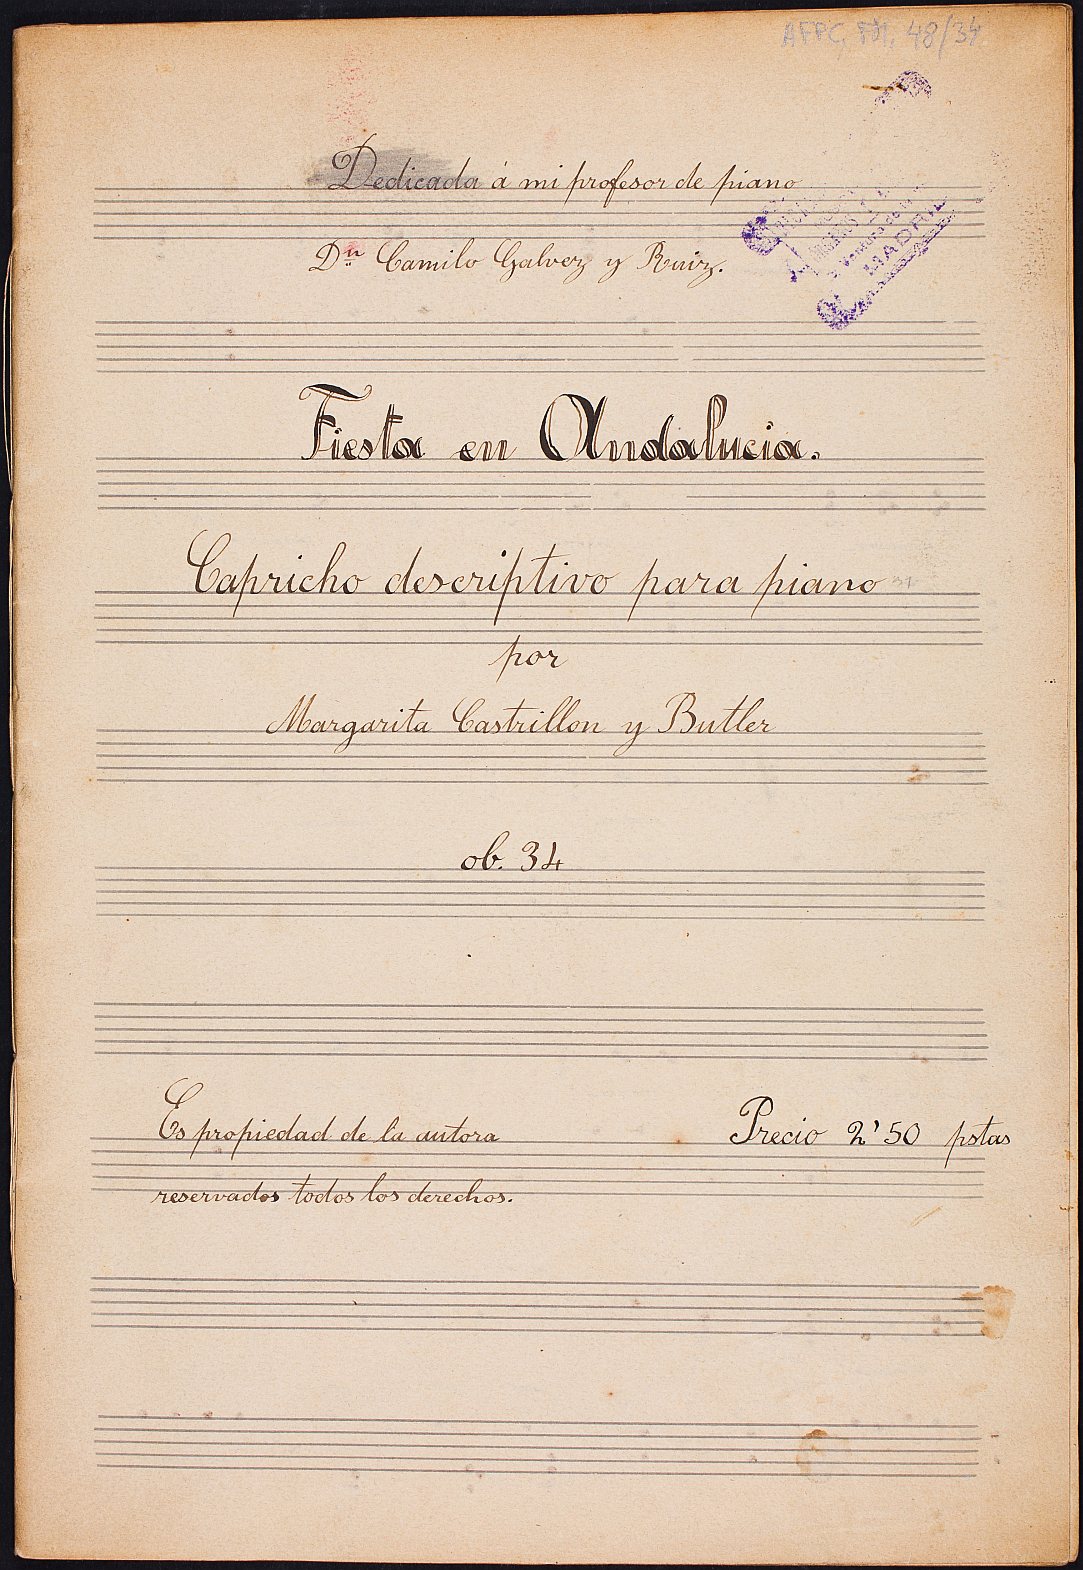 48/34
Dedicada á mi profesor de piano
Dn Camilo Galvez y Ruiz.
MADRID
Fiesta en Andalucia.
Capricho descriptivo para piano
por
Margarita Castrillon y Butler
ob. 34
Es propiedad de la autora
Precio 2'50 pstas
reservados todos los derechos.